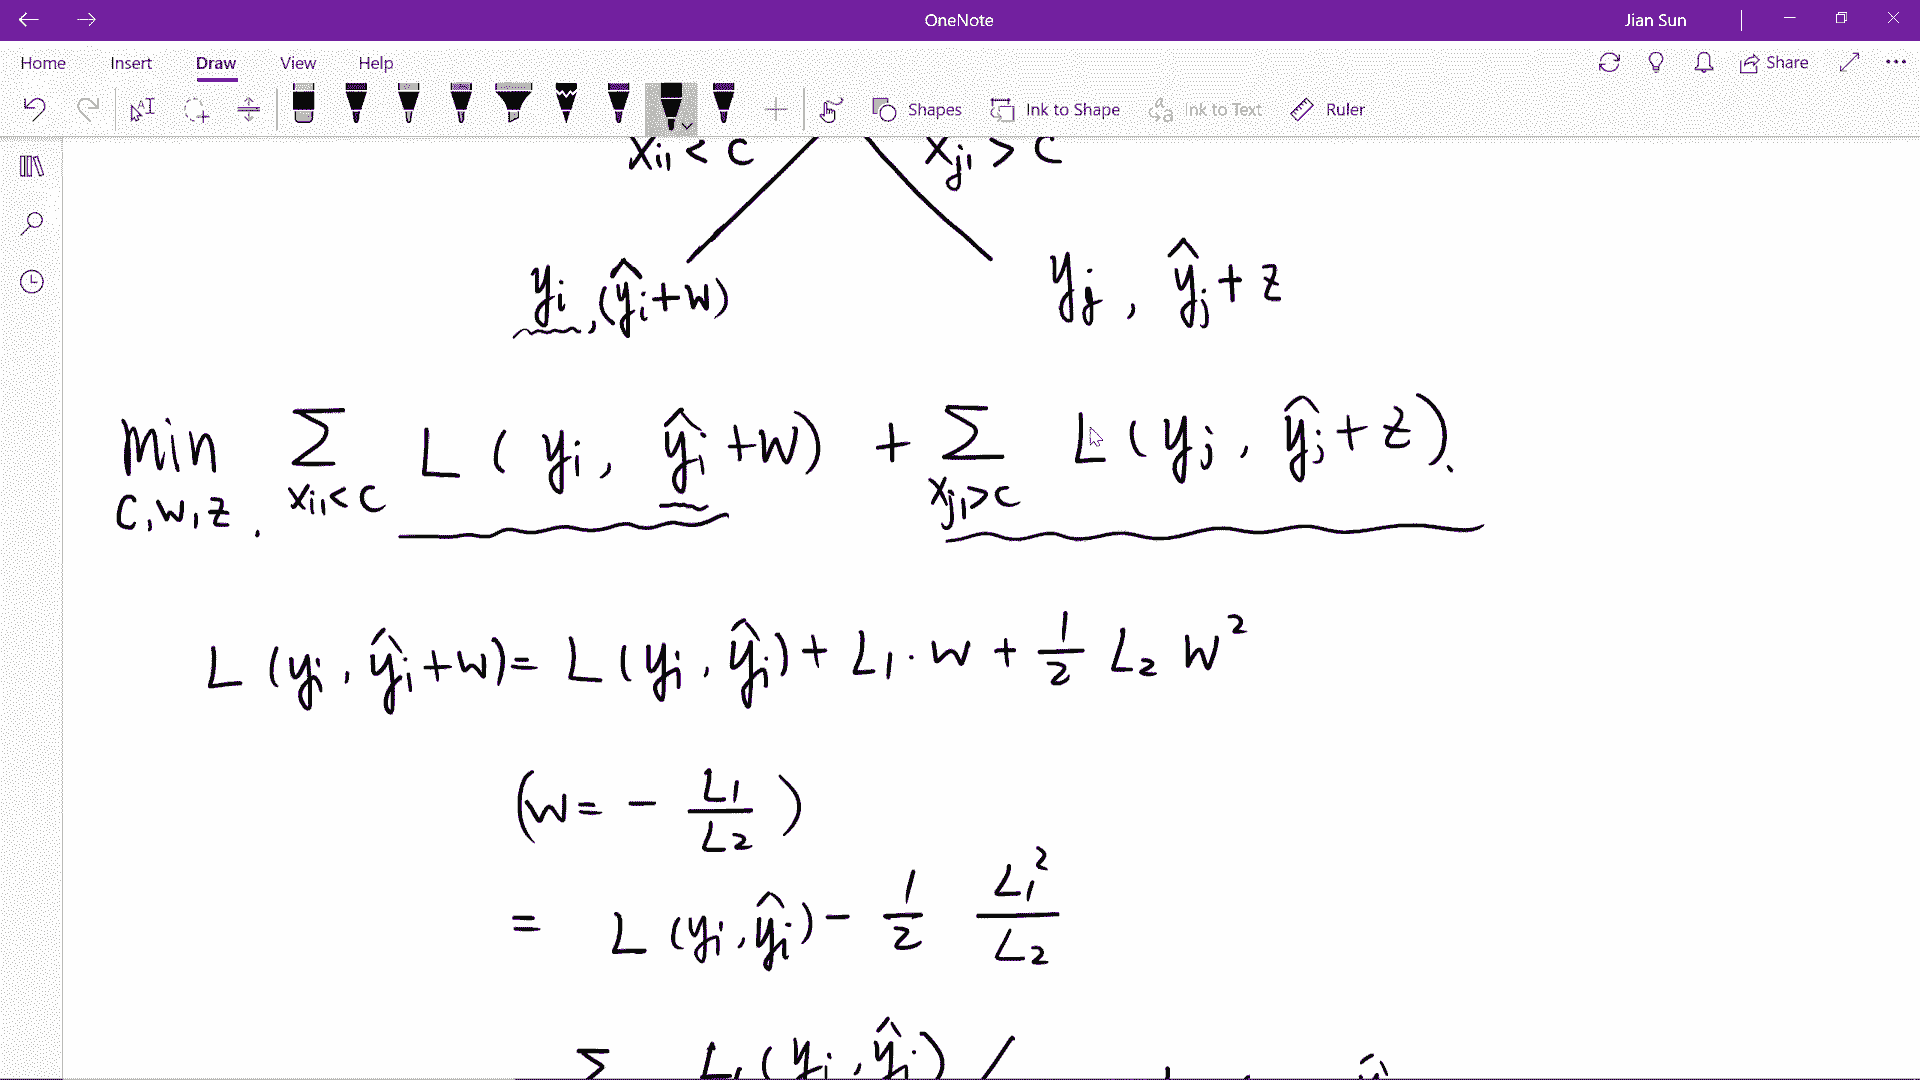 OneNote
Jian Sun
Home Insert Draw View Help
Share
Shapes Ink to Shape Ink to Text Ruler
x_{i1} < c x_{j1} > c
y_i, (ŷ_i + w) y_j, ŷ_j + z
min Σ L(y_i, ŷ_i + w) + Σ L(y_j, ŷ_j + z).
c, w, z. x_{i1} < c x_{j1} > c
L(y_i, ŷ_i + w) = L(y_i, ŷ_i) + L_1 · w + 1/2 L_2 w^2
(w = - L_1/L_2)
= L(y_i, ŷ_i) - 1/2 L_1^2/L_2
Σ L_1(y_i, ŷ_i) /